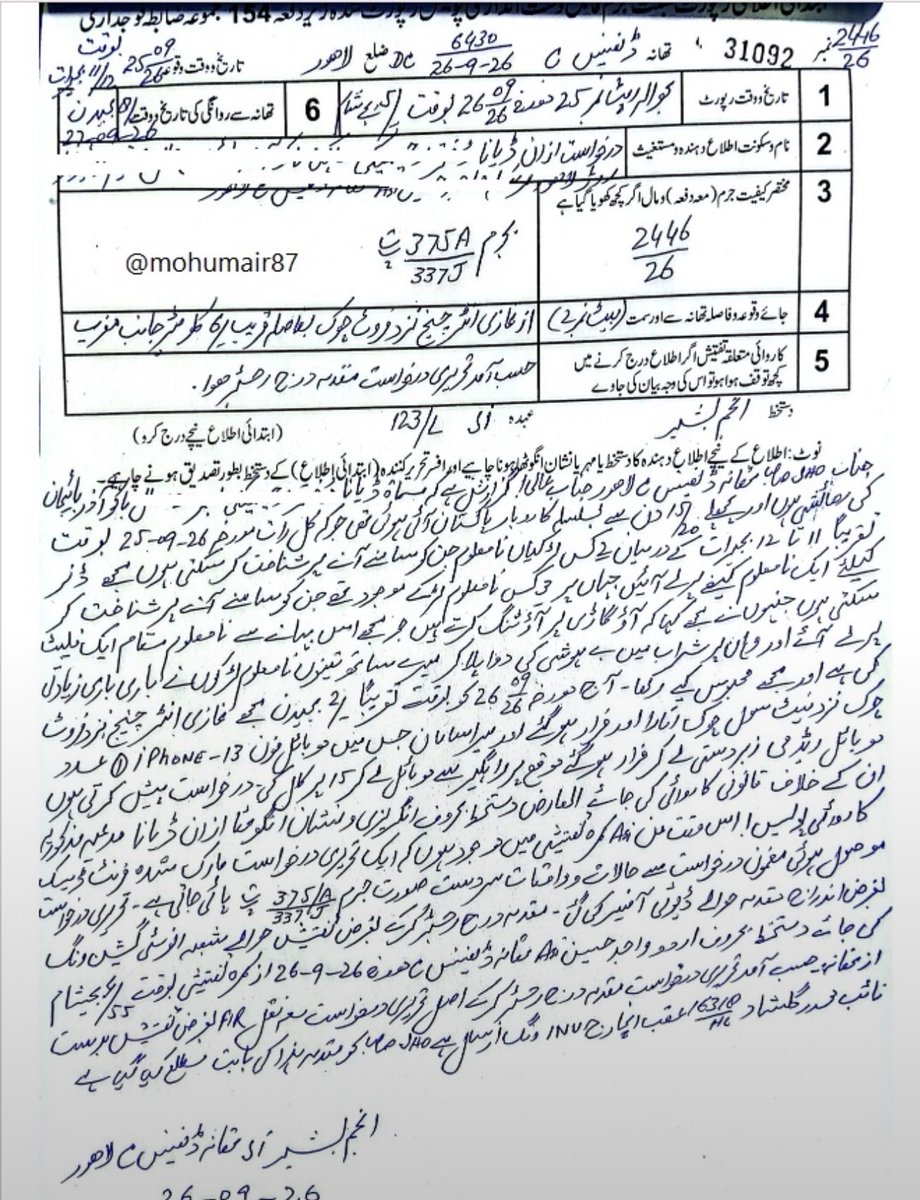 ابتدائی اطلاعی رپورٹ نسبت جرم قابل دست اندازی پولیس رپورٹ شدہ زیر دفعہ 154 مجموعہ ضابطہ فوجداری
نمبر 2446/26 31092 تھانہ ڈیفنس C ضلع لاہور DC 6430/26-9-26 تاریخ و وقت وقوعہ 25 09/26 بوقت 11/12 بجے رات
1 تاریخ و وقت رپورٹ بحوالہ رپٹ نمبر 25 مورخہ 26 09/26 بوقت
6 تھانہ سے روانگی کی تاریخ و وقت
2 نام و سکونت اطلاع دہندہ و مستغیث درخواست ازان ڈیانا
3 مختصر کیفیت جرم (معہ دفعہ) و مال اگر کچھ کھویا گیا ہے
2446/26
بجرم 375A/337J ت پ
@mohumair87
4 جائے وقوعہ و فاصلہ تھانہ سے اور سمت از غازی انٹرچینج نزد فروٹ چوک بفاصلہ قریب کلومیٹر جانب مغرب
5 کاروائی متعلقہ تفتیش اگر اطلاع درج کرنے میں کچھ توقف ہوا ہو تو اس کی وجہ بیان کی جاوے
حسب آمد تحریری درخواست مقدمہ درج رجسٹر ہوا۔
دستخط انجم بشیر عہدہ 123/L (ابتدائی اطلاع نیچے درج کرو)
نوٹ: اطلاع کے نیچے اطلاع دہندہ کا دستخط یا مہر یا نشان انگوٹھا ہونا چاہیے اور افسر تحریر کنندہ (ابتدائی اطلاع) کے دستخط بطور تصدیق ہونے چاہیے۔
جناب SHO صاحب تھانہ ڈیفنس C لاہور جناب عالی! گزارش ہے کہ مسماۃ ڈیانا
کی رہائشی ہوں اور پچھلے 15/20 دن سے بسلسلہ کاروبار پاکستان آئی ہوئی تھی جو کہ کل رات مورخہ 25-09-26 بوقت
تقریباً 11 تا 12 بجے رات کے درمیان 2 کس لڑکیاں نامعلوم جن کو سامنے آنے پر شناخت کر سکتی ہوں مجھے ڈنر
کیلئے ایک نامعلوم کیفے پر لے آئیں جہاں پر 3 کس نامعلوم لڑکے موجود تھے جن کو سامنے آنے پر شناخت کر
سکتی ہوں جنہوں نے مجھے کہا کہ آؤ گاڑی پر آؤٹنگ کرتے ہیں جو مجھے اس بہانے سے نامعلوم مقام ایک فلیٹ
پر لے آئے اور وہاں پر شراب میں بے ہوشی کی دوا پلا کر میرے ساتھ تینوں نامعلوم لڑکوں نے باری باری زیادتی
کی ہے اور مجھے محبوس کیے رکھا۔ آج مورخہ 26 09/26 کو بوقت تقریباً 2 بجے دن مجھے غازی انٹرچینج نزد فروٹ
چوک نزد نیٹ سول چوک اتارا اور فرار ہو گئے اور میرا سامان جس میں موبائل فون iPHONE-13 ① عدد
موبائل ریڈمی زبردستی لے کر فرار ہو گئے موقع پر راہگیر سے موبائل لے کر 15 پر کال کی۔ درخواست پیش کرتی ہوں
ان کے خلاف قانونی کاروائی کی جائے العارض دستخط بحروف انگریزی و نشان انگوٹھا ازان ڈیانا مدعیہ مذکوریہ
کاروائی پولیس! اس وقت من ASI کمرہ تفتیشی میں موجود ہوں کہ ایک تحریری درخواست مارک شدہ فرنٹ ڈیسک
موصول ہوئی مضمون درخواست سے حالات و واقعات سردست صورت جرم 375/A/337/J ت پ پائی جاتی ہے۔ تحریری درخواست
بغرض اندراج مقدمہ حوالے ڈیوٹی آفیسر کی گئی۔ مقدمہ درج رجسٹر کر کے بغرض تفتیش حوالے شعبہ انوسٹی گیشن ونگ
کی جائے دستخط بحروف اردو واجد حسین ASI تھانہ ڈیفنس C مورخہ 26-9-26 از کمرہ تفتیشی بوقت
از تھانہ: حسب آمد تحریری درخواست مقدمہ درج رجسٹر کر کے اصل تحریری درخواست معہ نقل FIR بغرض تفتیش بدست
نائب محمد گلشاد 6318/HC عقب انچارج INV ونگ ارسال ہے SHO صاحب کو مقدمہ ہذا کی بابت مطلع کیا گیا ہے
انجم بشیر تھانہ ڈیفنس C لاہور
26-09-26